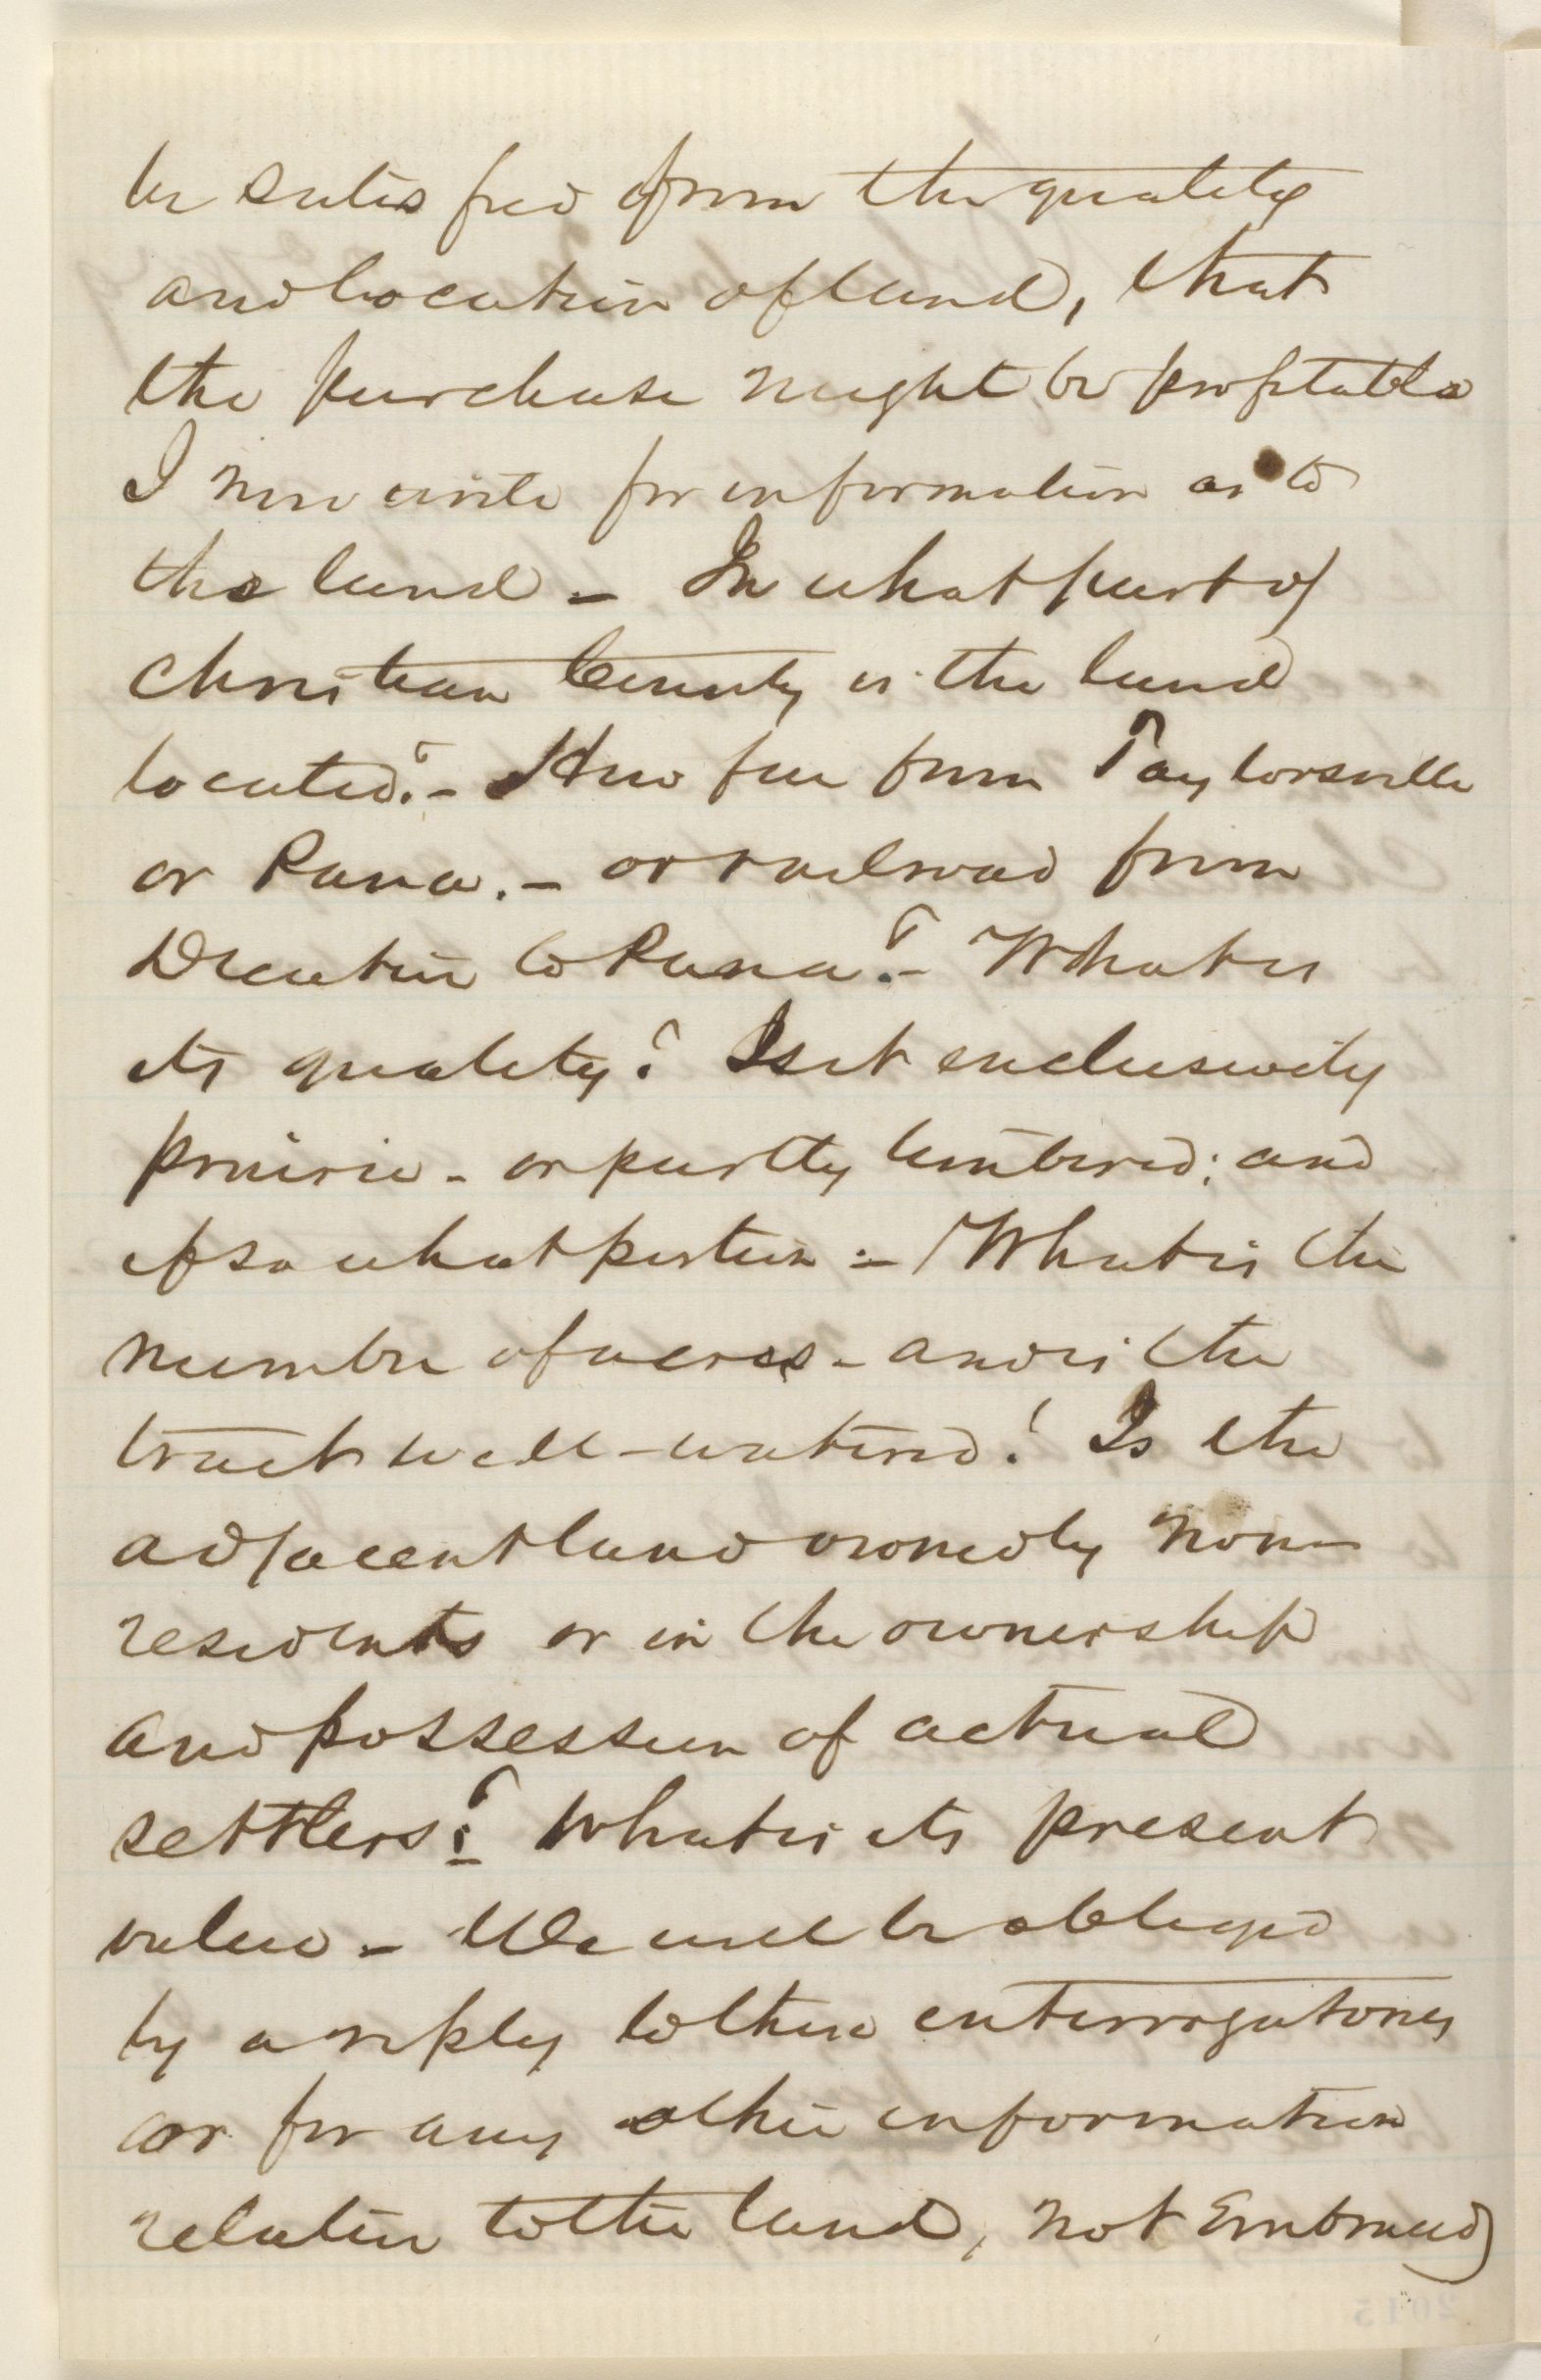 be satisfied from the quality
and location of land, that
the purchase might be profitable
I now write for information as to
the land - In what part of
Christian County is the land
located? - How far from Taylorsville
or Pana. - or railroad from
Decatur to Pana? - What is
its quality? Is it exclusively
prairie - or partly timbered; and
if so what portion - What is the
number of acres - and is the
tract well-watered? Is the
adjacent land owned by non-
residents or in the ownership
and possession of actual
settlers? What is its present
value - We will be obliged
by a reply to these enterrogatories
or for any other information
relative to the land, not Embraced